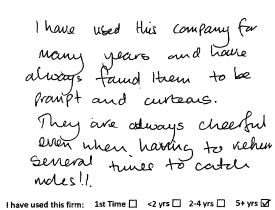 I have used this company for
many years and have
always found them to be
prompt and curteous.
They are always cheerful
even when having to return
several times to catch
moles!!.
I have used this firm: 1st Time ☐ <2 yrs ☐ 2-4 yrs ☐ 5+ yrs ☑